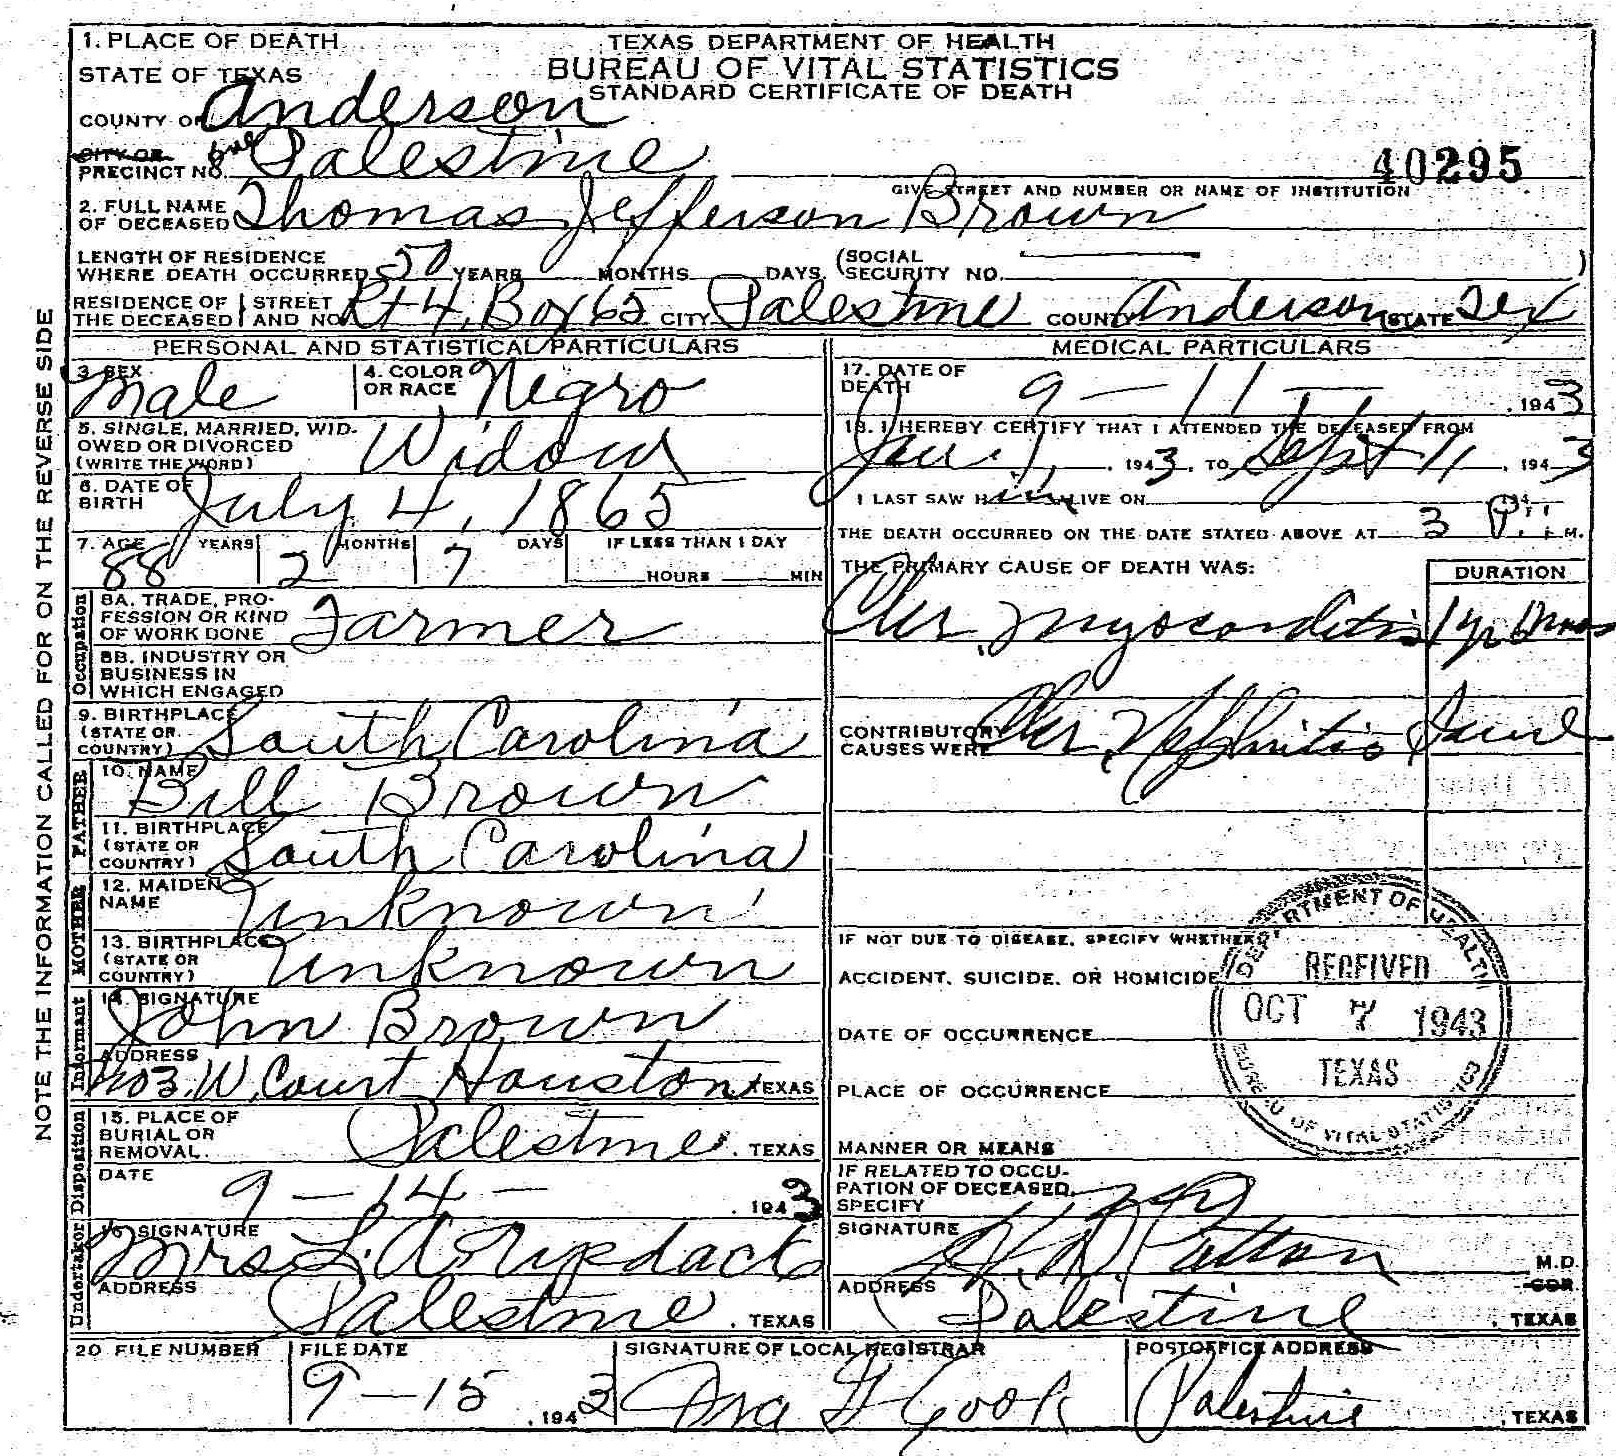 1. PLACE OF DEATH
TEXAS DEPARTMENT OF HEALTH
STATE OF TEXAS
BUREAU OF VITAL STATISTICS
STANDARD CERTIFICATE OF DEATH
COUNTY OF Anderson
CITY OR
PRECINCT NO. one Palestine
40295
GIVE STREET AND NUMBER OR NAME OF INSTITUTION
2. FULL NAME
OF DECEASED Thomas Jefferson Brown
LENGTH OF RESIDENCE
WHERE DEATH OCCURRED 50 YEARS MONTHS DAYS (SOCIAL SECURITY NO. — )
RESIDENCE OF THE DECEASED STREET AND NO. Rt 4, Box 65 CITY Palestine COUNTY Anderson STATE Tex
NOTE THE INFORMATION CALLED FOR ON THE REVERSE SIDE
PERSONAL AND STATISTICAL PARTICULARS
3. SEX Male
4. COLOR OR RACE Negro
5. SINGLE, MARRIED, WIDOWED OR DIVORCED
(WRITE THE WORD) Widow
6. DATE OF BIRTH July 4, 1865
7. AGE 88 YEARS 2 MONTHS 7 DAYS IF LESS THAN 1 DAY
HOURS MIN
Occupation
8A. TRADE, PROFESSION OR KIND OF WORK DONE Farmer
8B. INDUSTRY OR BUSINESS IN WHICH ENGAGED
9. BIRTHPLACE (STATE OR COUNTRY) South Carolina
FATHER
10. NAME Bill Brown
11. BIRTHPLACE (STATE OR COUNTRY) South Carolina
MOTHER
12. MAIDEN NAME Unknown
13. BIRTHPLACE (STATE OR COUNTRY) Unknown
Informant
14. SIGNATURE John Brown
ADDRESS W. Court Houston TEXAS
Disposition
15. PLACE OF BURIAL OR REMOVAL. Palestine. TEXAS
DATE 9 - 14 - . 1943
Undertaker
16. SIGNATURE Mrs L. A.
ADDRESS Palestine . TEXAS
MEDICAL PARTICULARS
17. DATE OF DEATH 9 - 11 - . 1943
18. I HEREBY CERTIFY THAT I ATTENDED THE DECEASED FROM
Jan 1, . 1943. TO Sept 11 . 1943
I LAST SAW H im ALIVE ON 194
THE DEATH OCCURRED ON THE DATE STATED ABOVE AT 3 P. M.
THE PRIMARY CAUSE OF DEATH WAS:
DURATION
Chr. Myocarditis 1 yr
CONTRIBUTORY CAUSES WERE Chr. Nephritis
IF NOT DUE TO DISEASE, SPECIFY WHETHER:
ACCIDENT, SUICIDE, OR HOMICIDE
DATE OF OCCURRENCE
PLACE OF OCCURRENCE
MANNER OR MEANS
IF RELATED TO OCCUPATION OF DECEASED, SPECIFY
DEPARTMENT OF HEALTH
RECEIVED
OCT 7 1943
TEXAS
BUREAU OF VITAL STATISTICS
SIGNATURE Patton M.D.
ADDRESS Palestine . TEXAS
20 FILE NUMBER
FILE DATE 9 - 15 . 1943
SIGNATURE OF LOCAL REGISTRAR Ava G Cook
POSTOFFICE ADDRESS Palestine , TEXAS